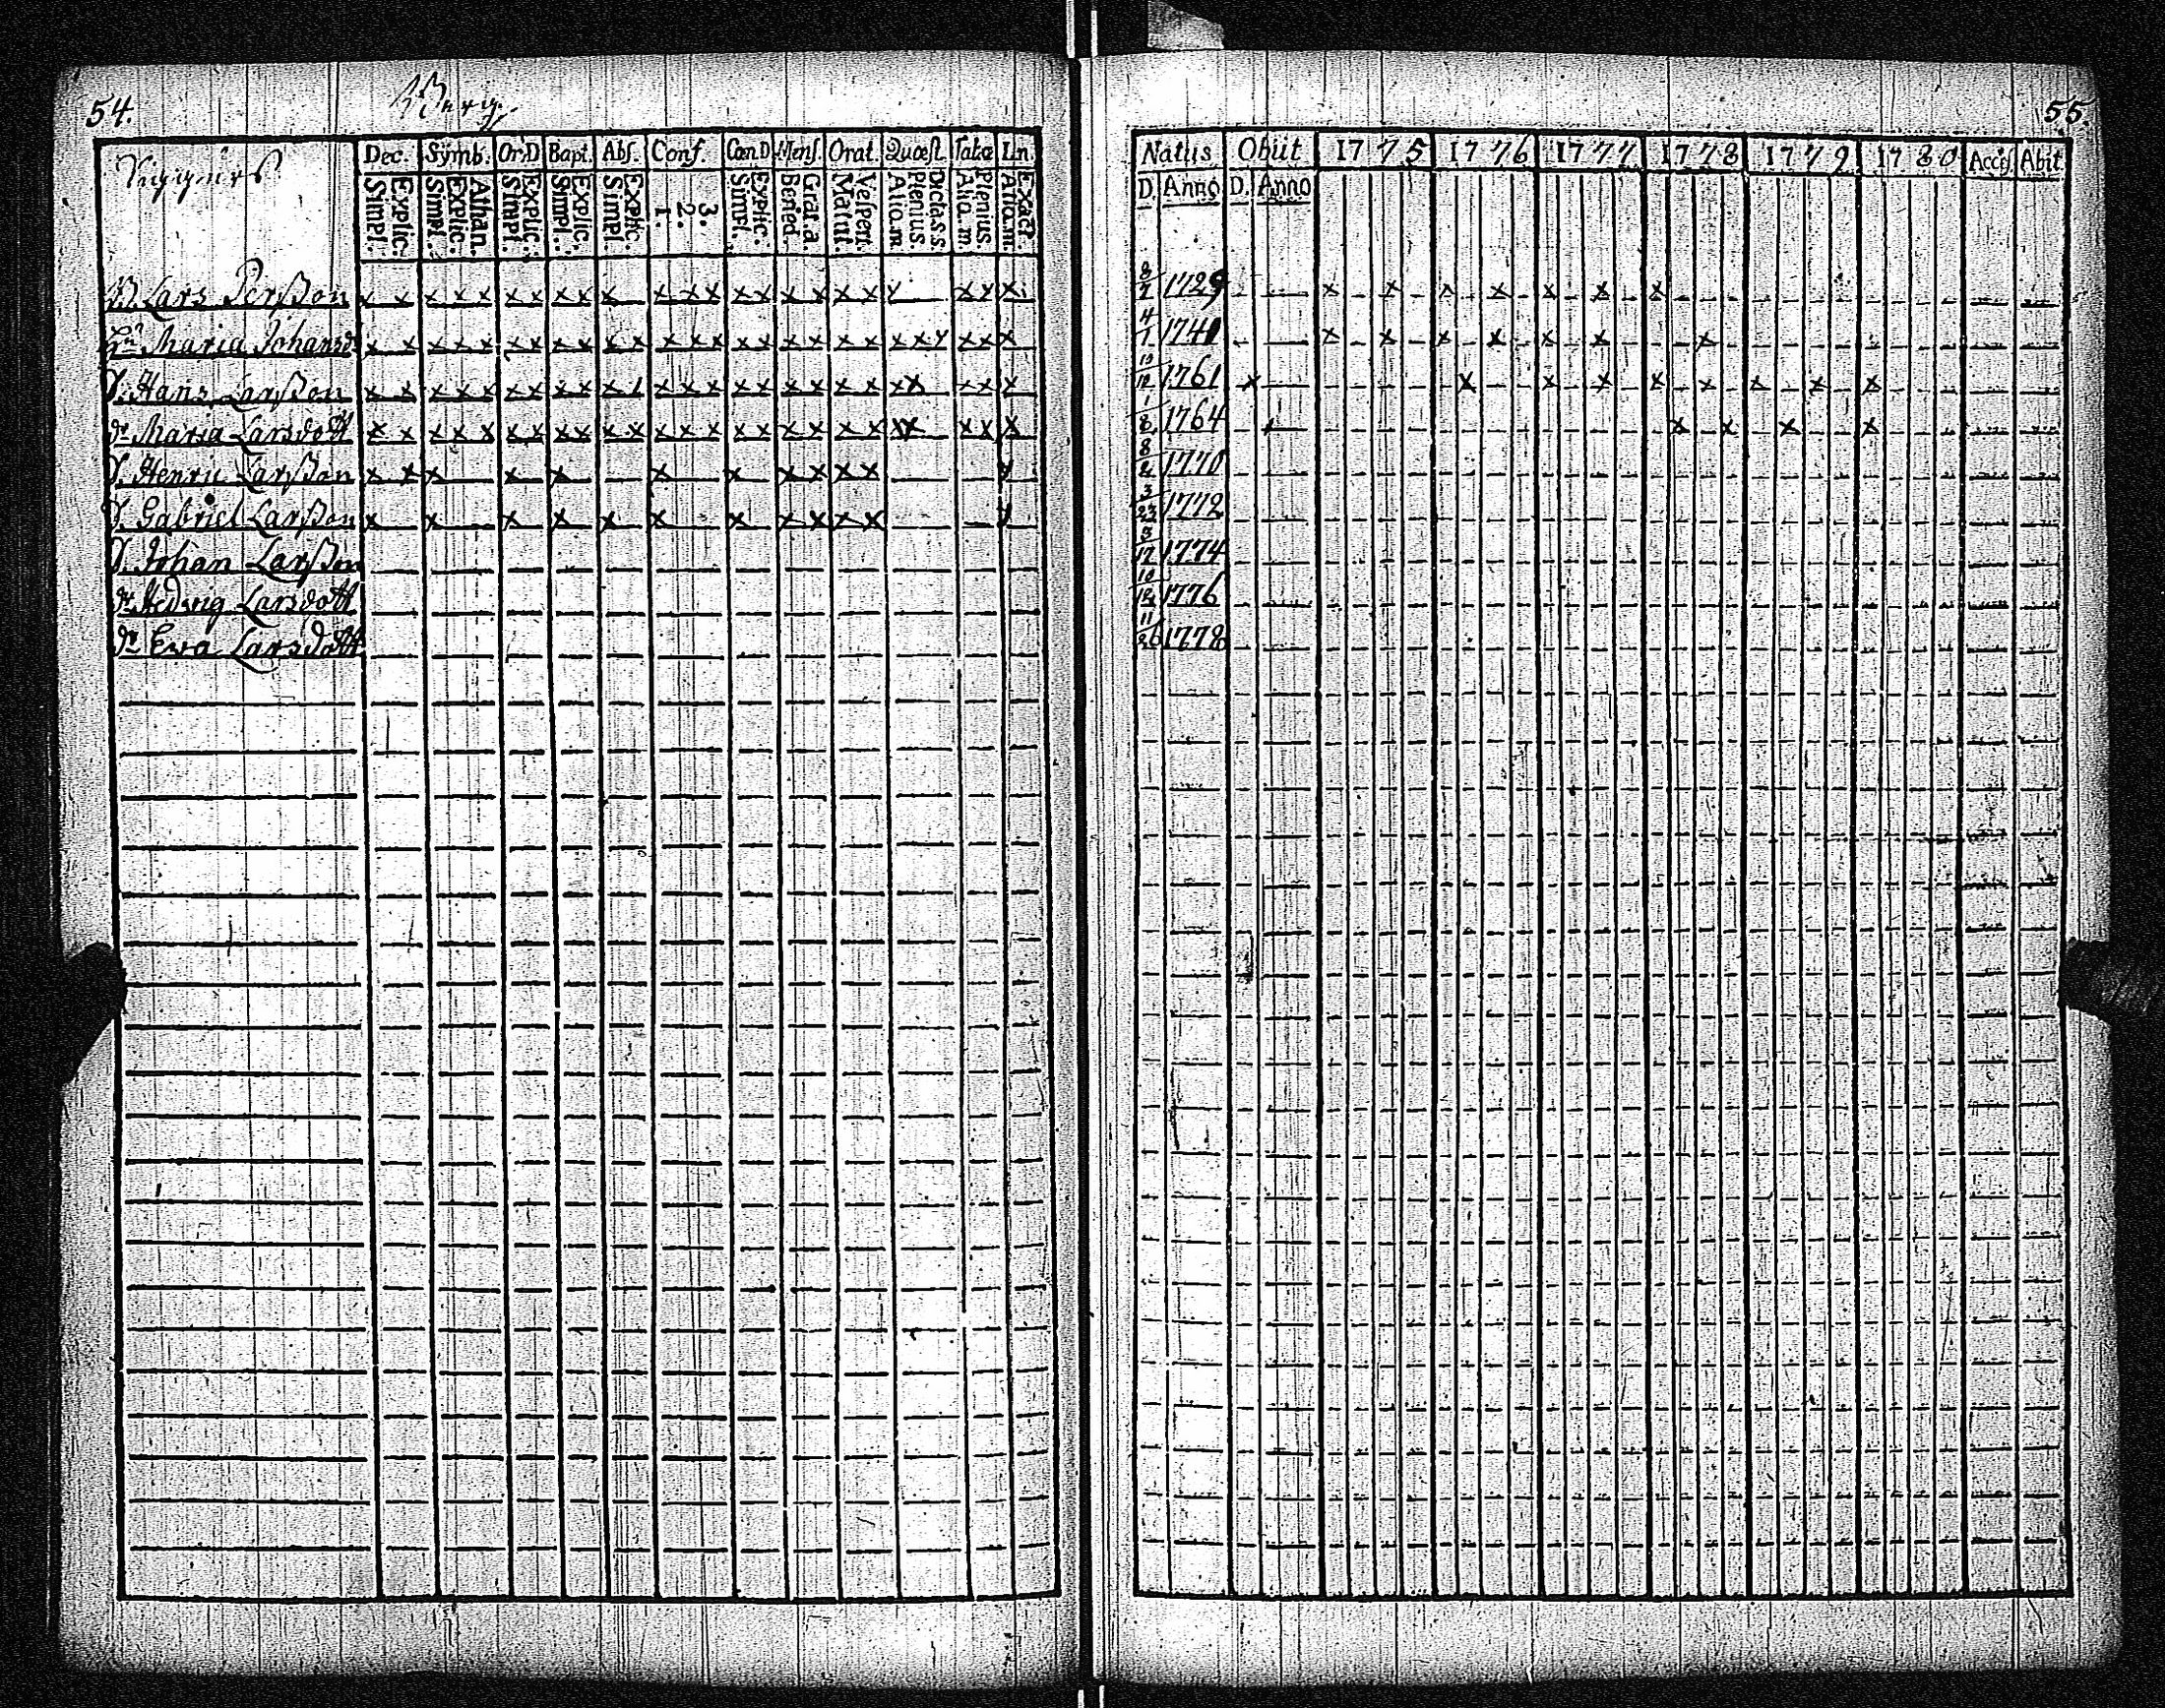 54.
Berg
Dec. Symb. Or.D Bapt. Abs. Conf. Cœn.D Mens. Orat. Quæst. Tabæ Lin.
Simpl. Explic. Simpl. Explic. Athan. Simpl. Explic. Simpl. Explic. Simpl. Explic. 1. 2. 3. Simpl. Explic. Bened. Grat.a Matut. Vespert. Alio.m Plenius. Dict.s.s. Alio.m. Plenius. Alio.m. Exact.
B Lars Perßon x x x x x x x x x x x x x x x x x x x x x x x
Hu Maria Johansd x x x x x x x x x x x x x x x x x x x x x x x x x x
S. Hans Larßon x x x x x x x x x x x x x x x x x x x x x x x x x
dr Maria Larsdott x x x x x x x x x x x x x x x x x x x x x x x x x
S. Henric Larßon x x x x x x x x x x x
S. Gabriel Larßon x x x x x x x x x x x
S. Johan Larßon
dr Hedvig Larsdott
dr Eva Larsdott
55.
Natus Obiit 1775 1776 1777 1778 1779 1780 Acceß. Abiit
D. Anno D. Anno
8/7 1729 x x x x x x x
4/1 1741 x x x x x x x
10/12 1761 x x x x x x x x x
1/8 1764 x x x x
8/2 1770
3/23 1772
5/17 1774
10/12 1776
11/26 1778